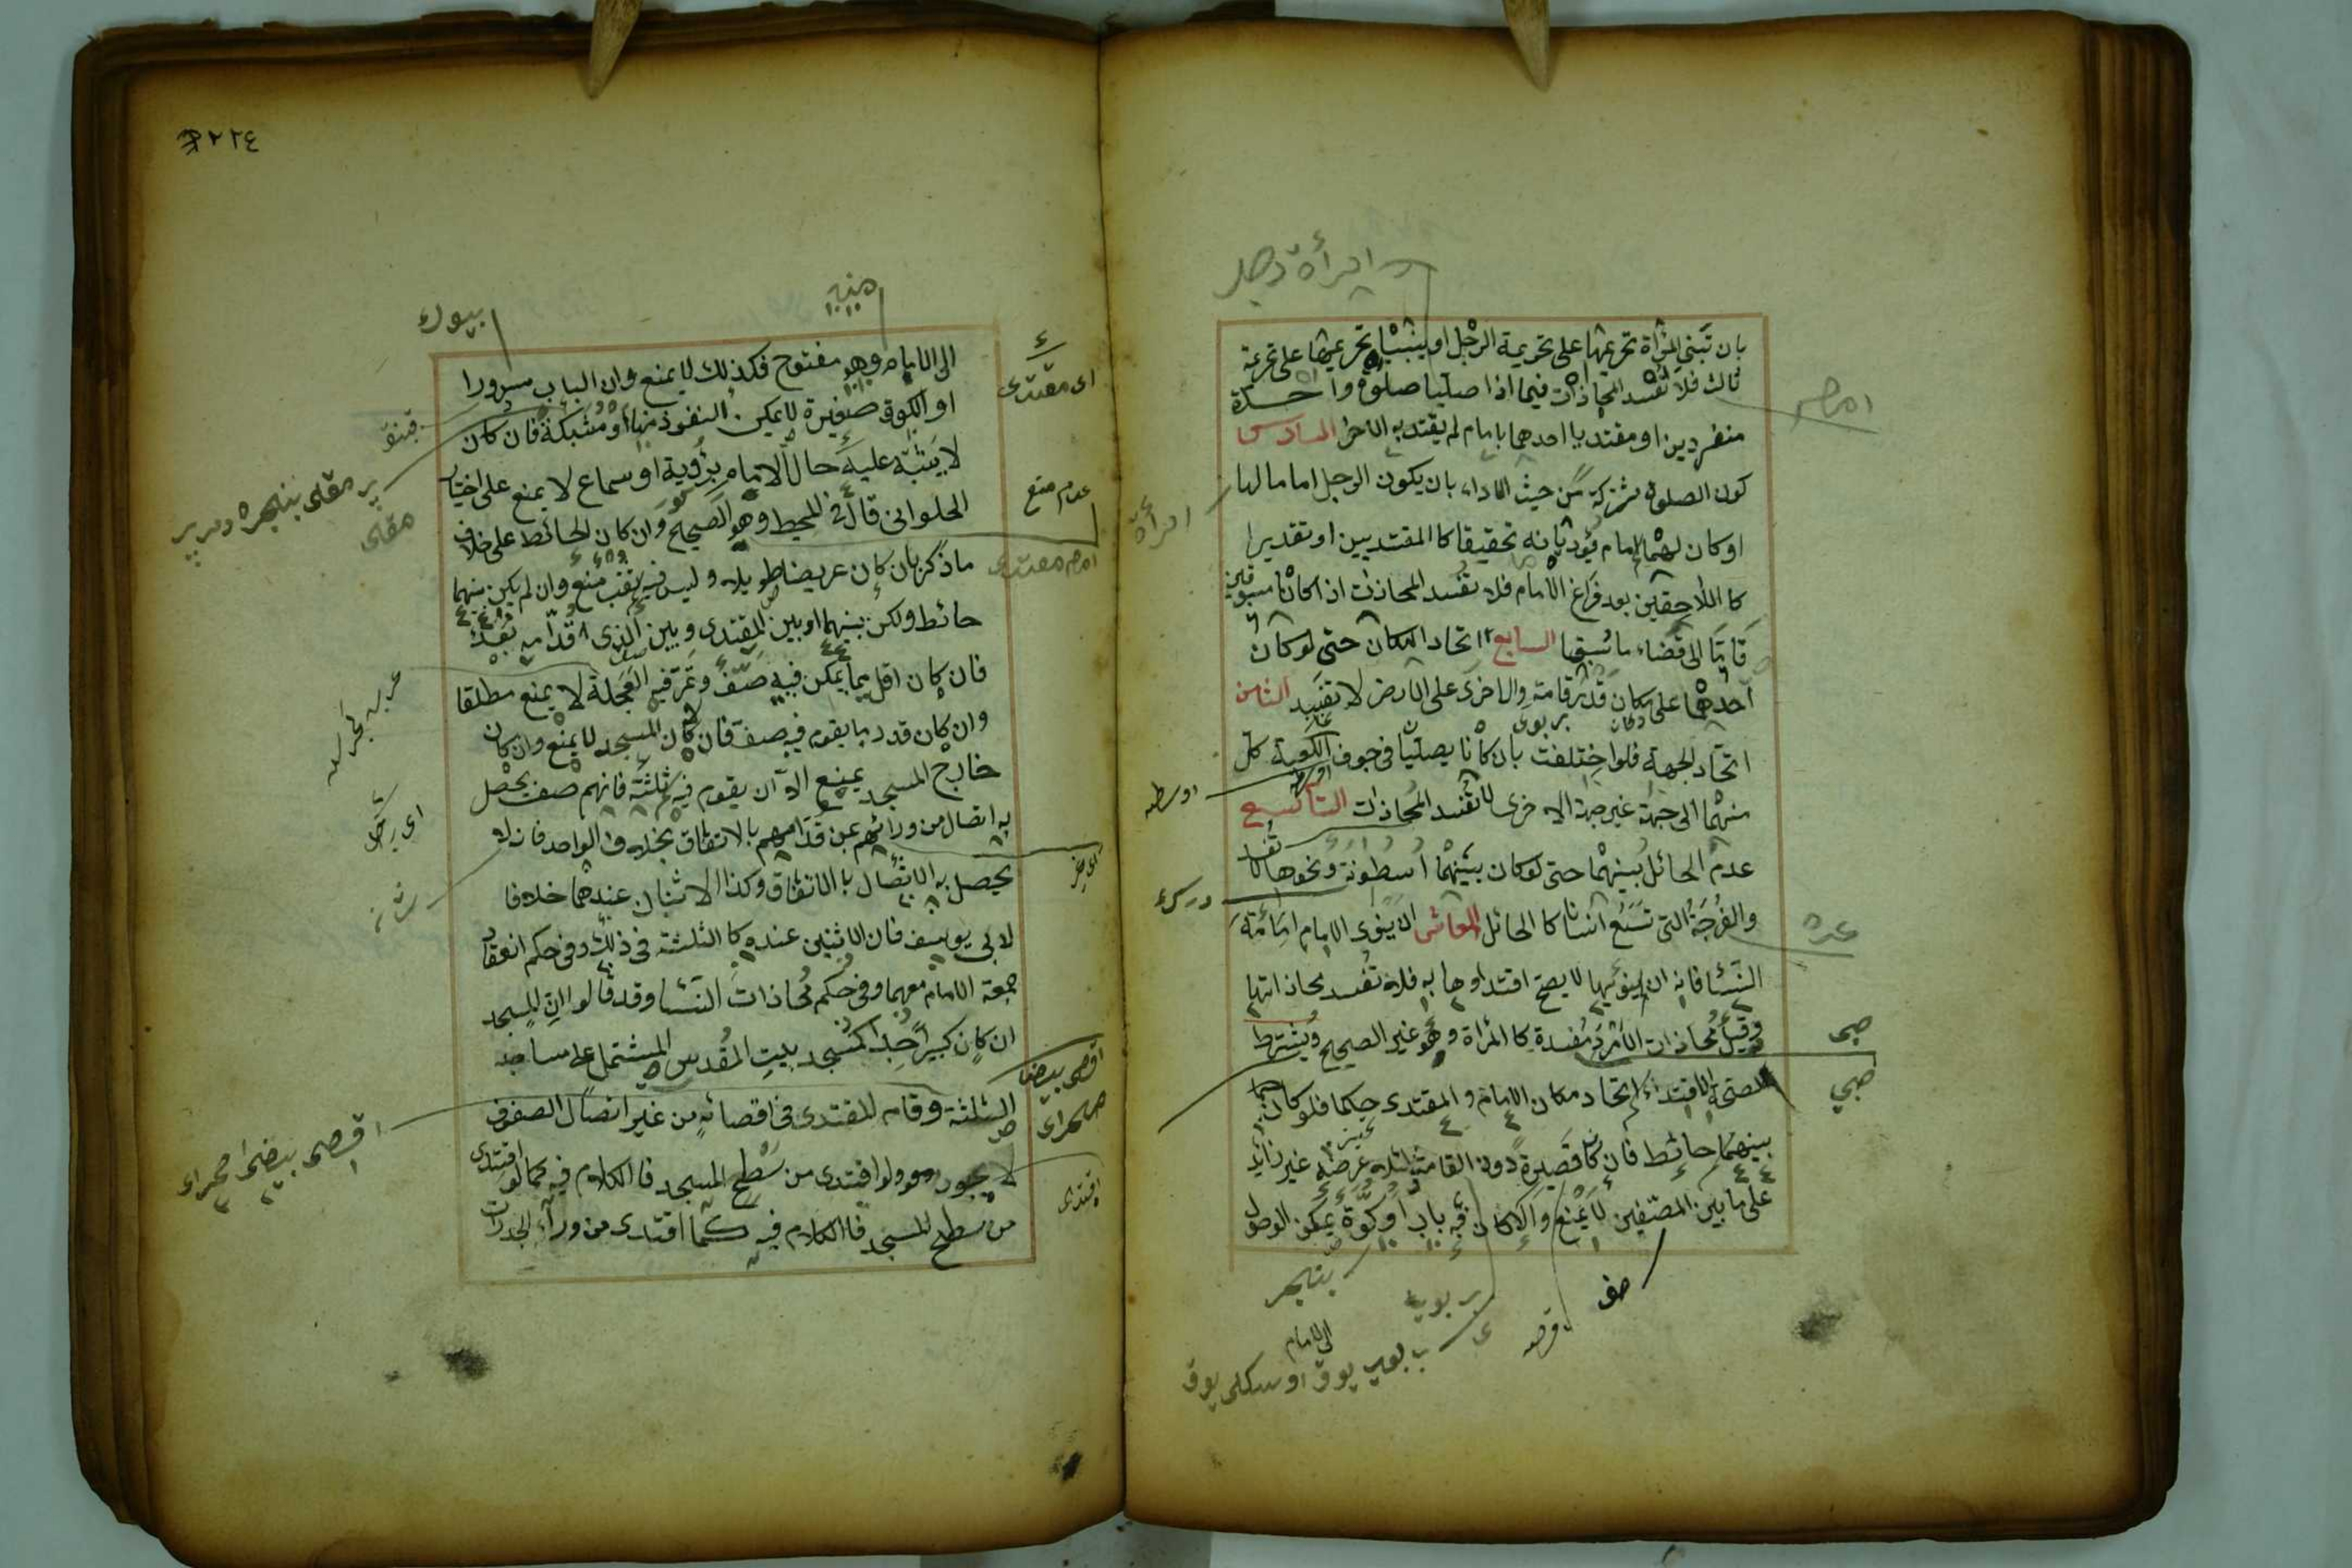 بان تبنى المرأة تحريمتها على تحريمة الرجل او يبنيا تحريمتهما على تحريمة
ثالث فلا تفسد المحاذات فيما اذا صليا صلوة واحدة
منفردين او مقتديا احدهما بامام لم يقتد به الاخر السادس
كون الصلوة مشتركة من حيث الاداء بان يكون الرجل اماما لها
او كان لهما امام فيؤديانه تحقيقا كالمقتديين او تقديرا
كا اللاحقين بعد فراغ الامام فلا تفسد المحاذات اذا كانا مسبوقين
قاما الى قضاء ما سبقا السابع اتحاد المكان حتى لو كان
احدهما على مكان قدر قامة والاخرى على الارض لا تفسد الثامن
اتحاد الجهة فلو اختلفت بان كانا يصليان فى جوف الكعبة كل
منهما الى جهة غير جهة الاخرى لا تفسد المحاذات التاسع
عدم الحائل بينهما حتى لو كان بينهما اسطونة ونحوها لا تفسد
والفرجة التى تسع انسانا كا الحائل العاشر ان ينوى الامام امامة
النسا فانه ان لم ينويها لا يصح اقتداوها به فلا تفسد محاذاتها
وقيل محاذات الامرد مفسدة كا المرأة وهو غير الصحيح ويشترط
لصحة الاقتداء اتحاد مكان الامام والمقتدى حكما فلو كان
بينهما حائط فان كان قصيرة دون القامة عرضه غير زائد
على ما بين الصفين لا يمنع والا كان فيه باب او كوة يمكن الوصول
امام
امرأة
اوسطه
صبى
صبي
صف
الى الامام
٢٢٤
الى الامام وهو مفتوح فكذلك لا يمنع وان الباب مسدودا
او الكوة صغيرة لا يمكن النفوذ منها او مشبكة فان كان
لا يشتبه عليه حال الامام برؤية او سماع لا يمنع على اختيار
الحلوانى قال فى المحيط وهو الصحيح وان كان الحائط على خلاف
ما ذكر بان كان عريضا طويلا وليس فيه ثقب منع وان لم يكن بينهما
حائط ولكن بينهما او بين المقتدى وبين الذى قدامه بعد
فان كان اقل مما يمكن فيه صف وتمر فيه العجلة لا يمنع مطلقا
وان كان قدر ما يقوم فيه صف فان كان المسجد لا يمنع وان كان
خارج المسجد يمنع الا ان يقوم فيه ثلثة فانهم صف يحصل
به اتصال من ورائهم عن قدامهم بالاتفاق بخلاف الواحد فانه لا
يحصل به الاتصال با الاتفاق وكذا الاثنان عندهما خلافا
لابى يوسف فان الاثنين عنده كا الثلثة فى ذلك وفى حكم انعقاد
جمعة الامام معهما وفى حكم محاذات النسا وقد قالوا ان المسجد
ان كان كبيرا جدا كمسجد بيت المقدس المشتمل على مساجد
الثلثة وقام المقتدى فى اقصائه من غير اتصال الصفوف
لا يجوز ولو اقتدى من سطح المسجد فا الكلام فيه كما لو اقتدى
من سطح المسجد فا الكلام فيه كما اقتدى من وراء الجدرات
اى مقتدى
عدم منع
اقصى بيضا
صحراى
اقتدى
اقصى بيضا صحراى